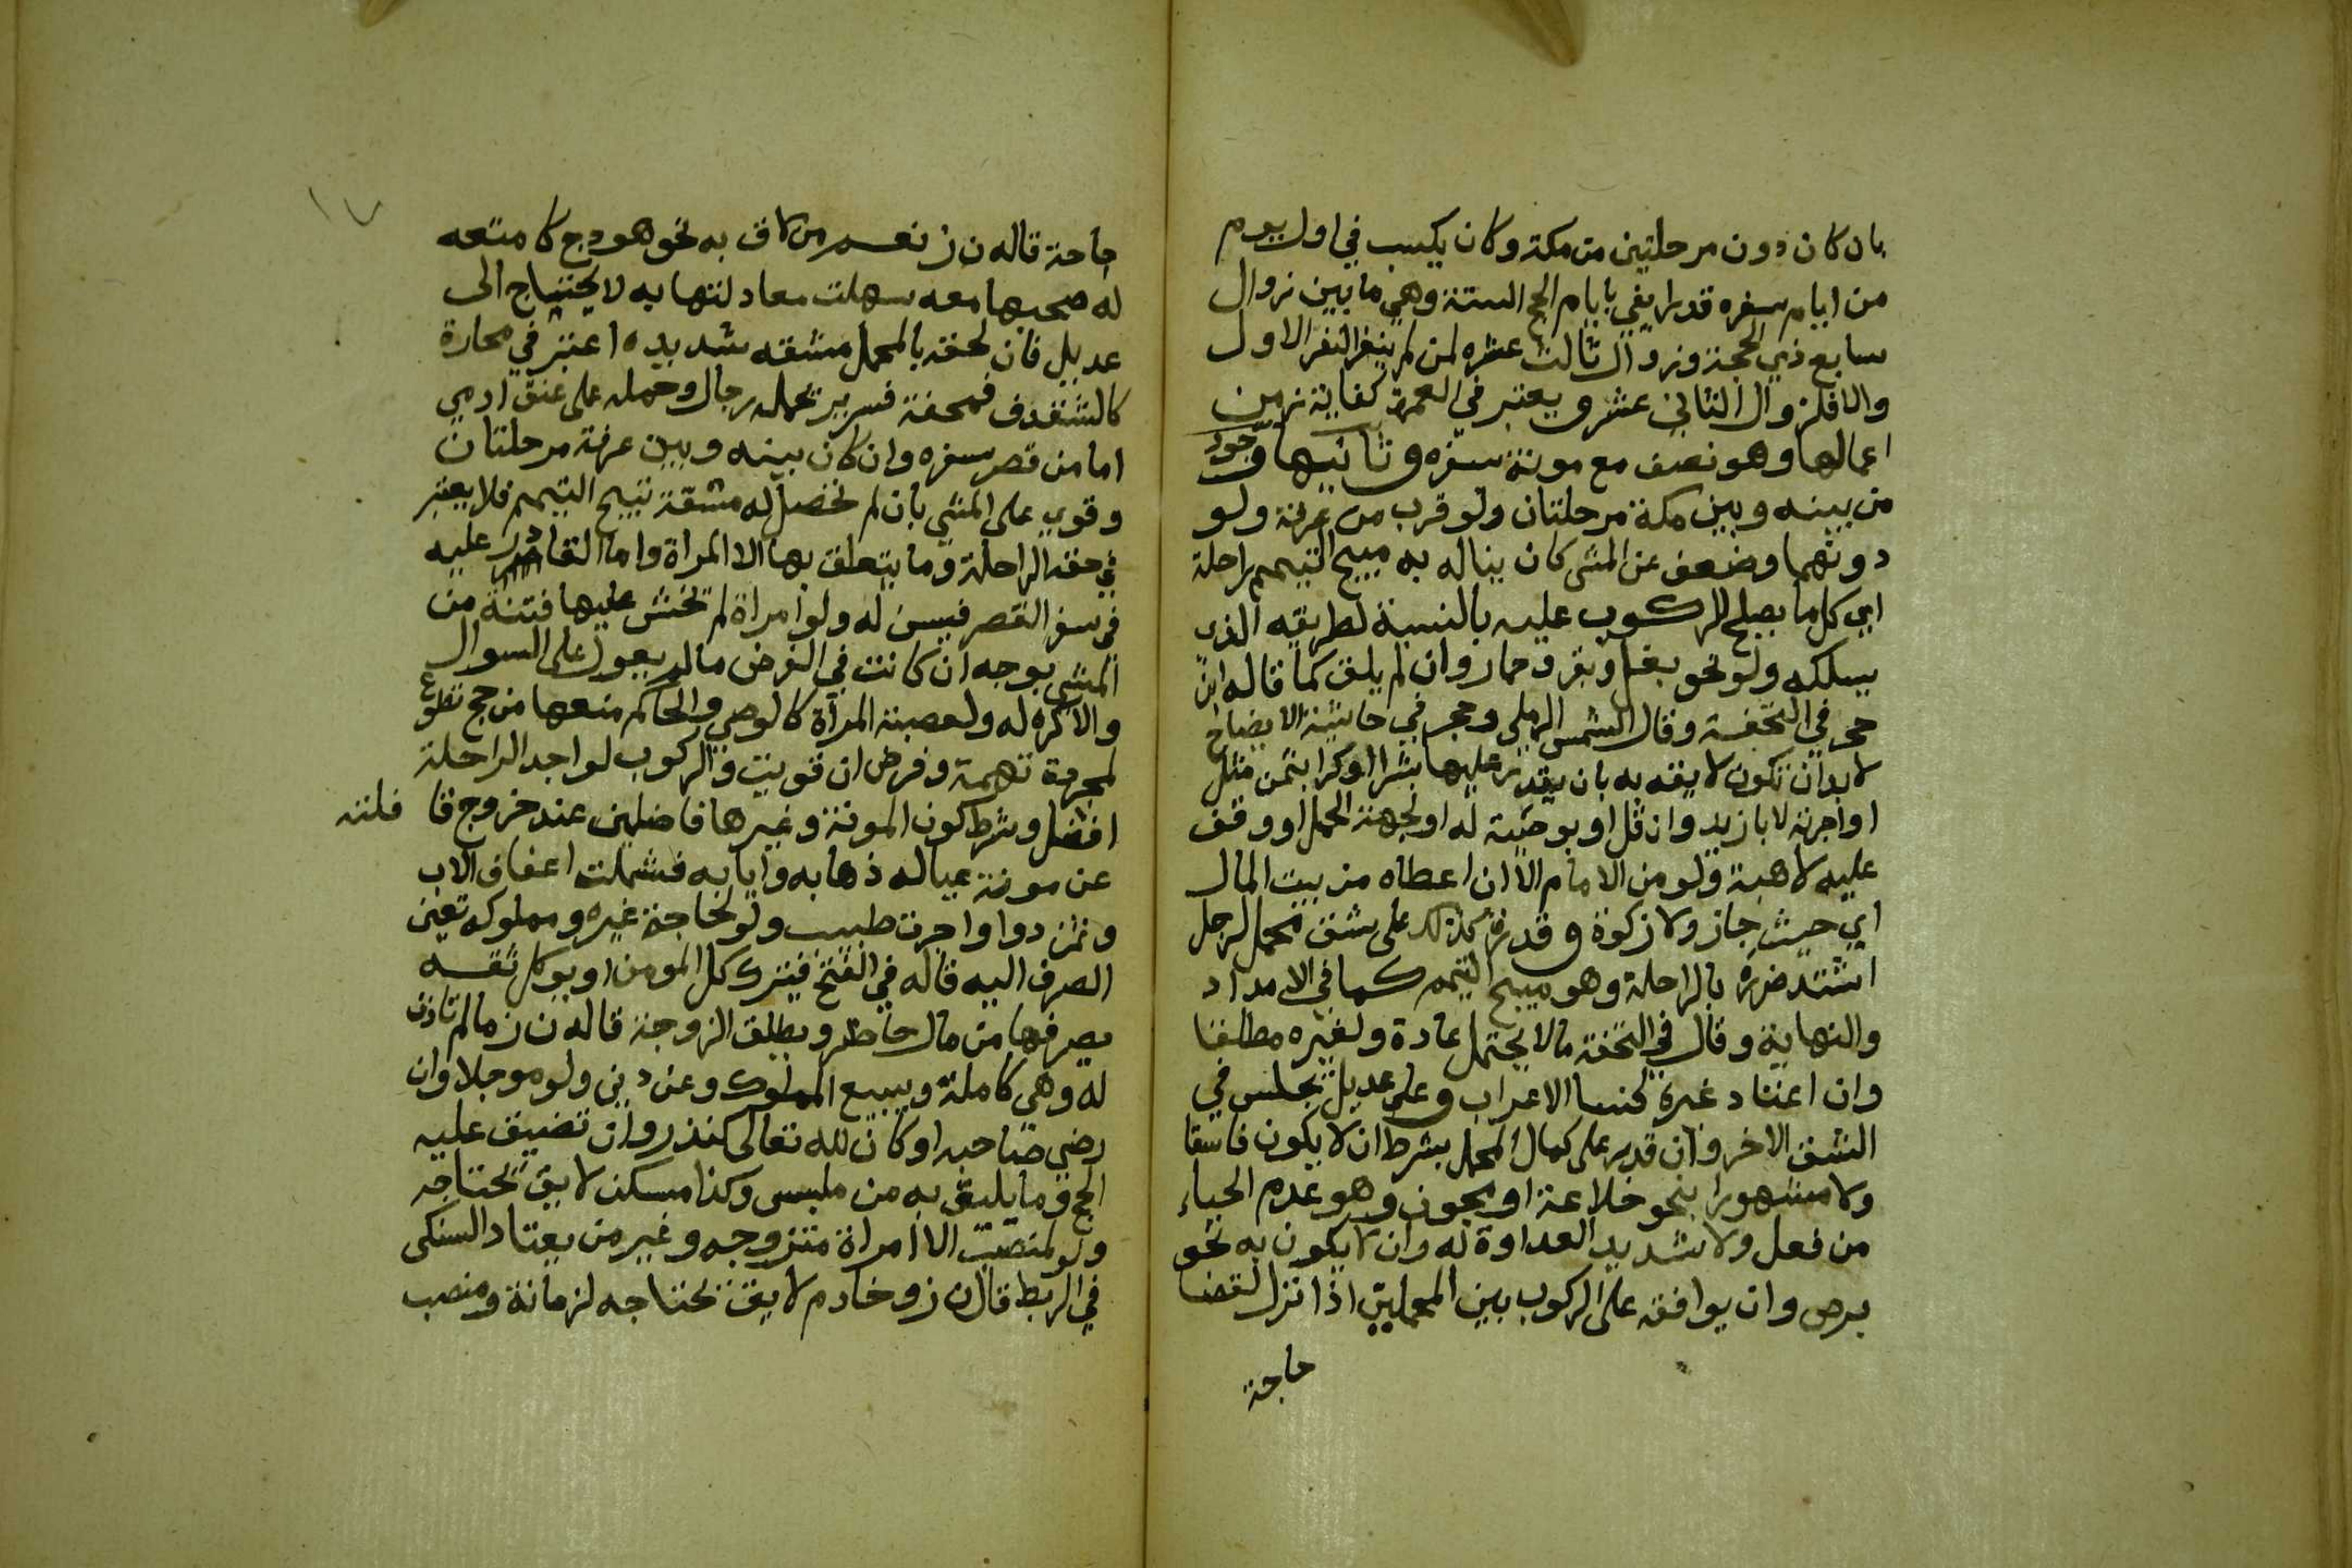 بان كان دون مرحلتين من مكة وكان يكسب في اول يوم
من ايام سفره قدرا يفي بايام الحج الستة وهي ما بين زوال
سابع ذي الحجة وزوال ثالث عشره لمن لم ينفر النفر الاول
والا فلزوال الثاني عشر ويعتبر في العمرة كفاية زمن
اعمالها وهو نصف مع مونة سفره وثانيها وجود
من بينه وبين مكة مرحلتان ولو قرب من عرفة ولو
دونهما وضعف عن المشي كان يناله به مبيح التيمم راحلة
اي كل ما يصلح للركوب عليه بالنسبة لطريقه الذي
يسلكه ولو نحو بغل وبقر وحمار وان لم يلق كما قاله ابن
حجر في التحفة وقال الشمس الرملي وحجر في حاشية الايضاح
لا بد ان تكون لايقه به بان يقدر عليها بشرا او كرا بثمن مثل
او اجرة لا بازيد وان قل او بوصية له او لجهة الحمل او وقف
عليه لا هبة ولو من الامام الا ان اعطاه من بيت المال
اي حيث جاز ولا زكوة وقدرة كذلك على شق محمل لرجل
اشتد ضرره بالراحلة وهو مبيح التيمم كما في الامداد
والنهاية وقال في التحفة ما لا يحتمل عادة ولغيره مطلقا
وان اعتاد غيره كنسا الاعراب وعلى عديل يجلس في
الشق الاخر وان قدر على كمال المحمل بشرط ان لا يكون فاسقا
ولا مشهورا بنحو خلاعة او مجون وهو عدم الحياء
من فعل ولا شديد العداوة له وان لا يكون به نحو
برص وان يوافقه على الركوب بين المحملين اذا نزل لقضا
حاجة
١٧
حاجة قاله ن ز نعم من كان به نحو هودج كامتعه
له صحبها معه سهلت معادلتها به لا يحتاج الى
عديل فان لحقه بالمحمل مشقه شديده اعتبر في محارة
كالشقدف فمحفة فسرير تحمله رجال وحمله على عنق ادمي
اما من قصر سفره وان كان بينه وبين عرفة مرحلتان
وقوي على المشي بان لم تحصل له مشقة تبيح التيمم فلا يعتبر
في حقه الراحلة وما يتعلق بها الا المراة واما القادر عليه
في سفر القصر فيسن له ولو امراة لم تخش عليها فتنة من
المشي بوجه ان كانت في الفرض ما لم يعول على السوال
والا كره له ولعصبة المرأة كالوصي والحاكم منعها من حج تطوع
لمجرد تهمة وفرض ان قويت والركوب لواجد الراحلة
افضل وشرط كون المونة وغيرها فاضلين عند خروج قافلته
عن مونة عياله ذهابه وايابه فشملت اعفاف الاب
وثمن دوا واجرت طبيب ولو لحاجة غيره ومملوكه تعين
الصرف اليه قاله في الفتح فيترك كل المومن او يوكل ثقه
يصرفها من مال حاضر ويطلق الزوجة قاله ن ز ما لم تاذن
له وهي كاملة ويبيع المملوك وعن دين ولو موجلا وان
رضي صاحبه او كان لله تعالى كنذر وان تضيق عليه
الحج وما يليق به من ملبس وكذا مسكن لايق يحتاجه
ولو لمنصبه الا امراة متزوجه وغير من يعتاد السكنى
في الربط قال ن ز وخادم لايق يحتاجه لزمانة ومنصب